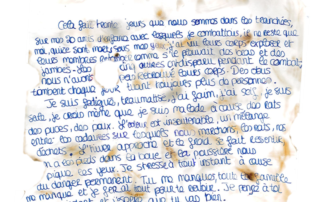 Cela fait trente jours que nous sommes dans les tranchées,
sur mes 20 amis d'enfance avec lesquels je combattais, il ne reste que
moi, quinze sont morts sous mes yeux. J'ai vu leurs corps exploser et
leurs membres comme s'il pleuvait des bras et des
jambes. Les cinq autres ont disparu pendant le combat,
nous n'avons pas retrouvé leurs corps. Des obus
tombent chaque jour, tuant toujours plus de personnes.
Je suis fatigué, traumatisé, j'ai faim, j'ai soif, je suis
sale, je crois même que je suis malade à cause des rats
des puces, des poux. L'odeur est insoutenable, un mélange
entre les cadavres sur lesquels nous marchons, les rats, nos
déchets. L'hiver approche et le froid se fait ressentir,
on a les pieds dans la boue et la poussière nous
pique les yeux. Je stresse à tout instant à cause
du danger permanent. Tu me manques, toute la famille
me manque et je ferai tout pour te revoir. Je pense à toi
et j'espère que tu vas bien.